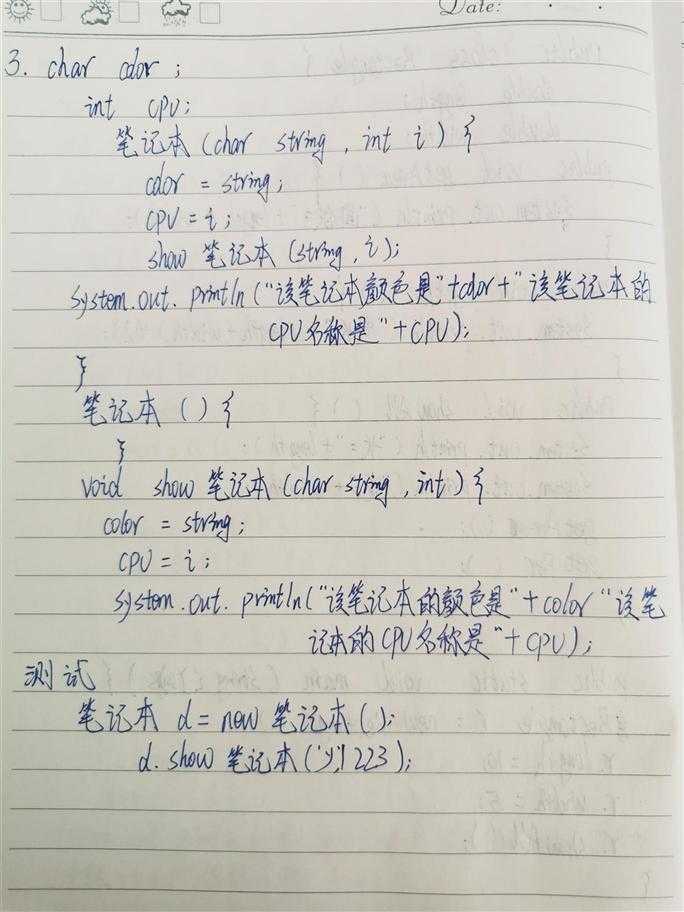 Date:
3. char color ;
int CPU;
笔记本 (char string , int i) {
color = string;
CPU = i;
show 笔记本 (string , i);
system.out. println ("该笔记本颜色是"+color+"该笔记本的
CPU名称是"+CPU);
}
笔记本 () {
}
void show 笔记本 (char string , int) {
color = string;
CPU = i;
system.out. println("该笔记本的颜色是"+color"该笔
记本的CPU名称是"+CPU);
测试
笔记本 d = new 笔记本 ();
d. show 笔记本 ('y',1223);